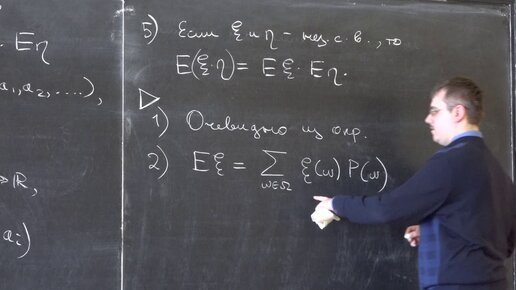 . Eη
a₁, a₂, ....),
→ ℝ,
aᵢ)
5) Если ξ и η – нез. с. в., то
E(ξ·η) = Eξ · Eη.
▷
1) Очевидно из опр.
2) Eξ = ∑ ξ(ω) P(ω)
ω∈Ω